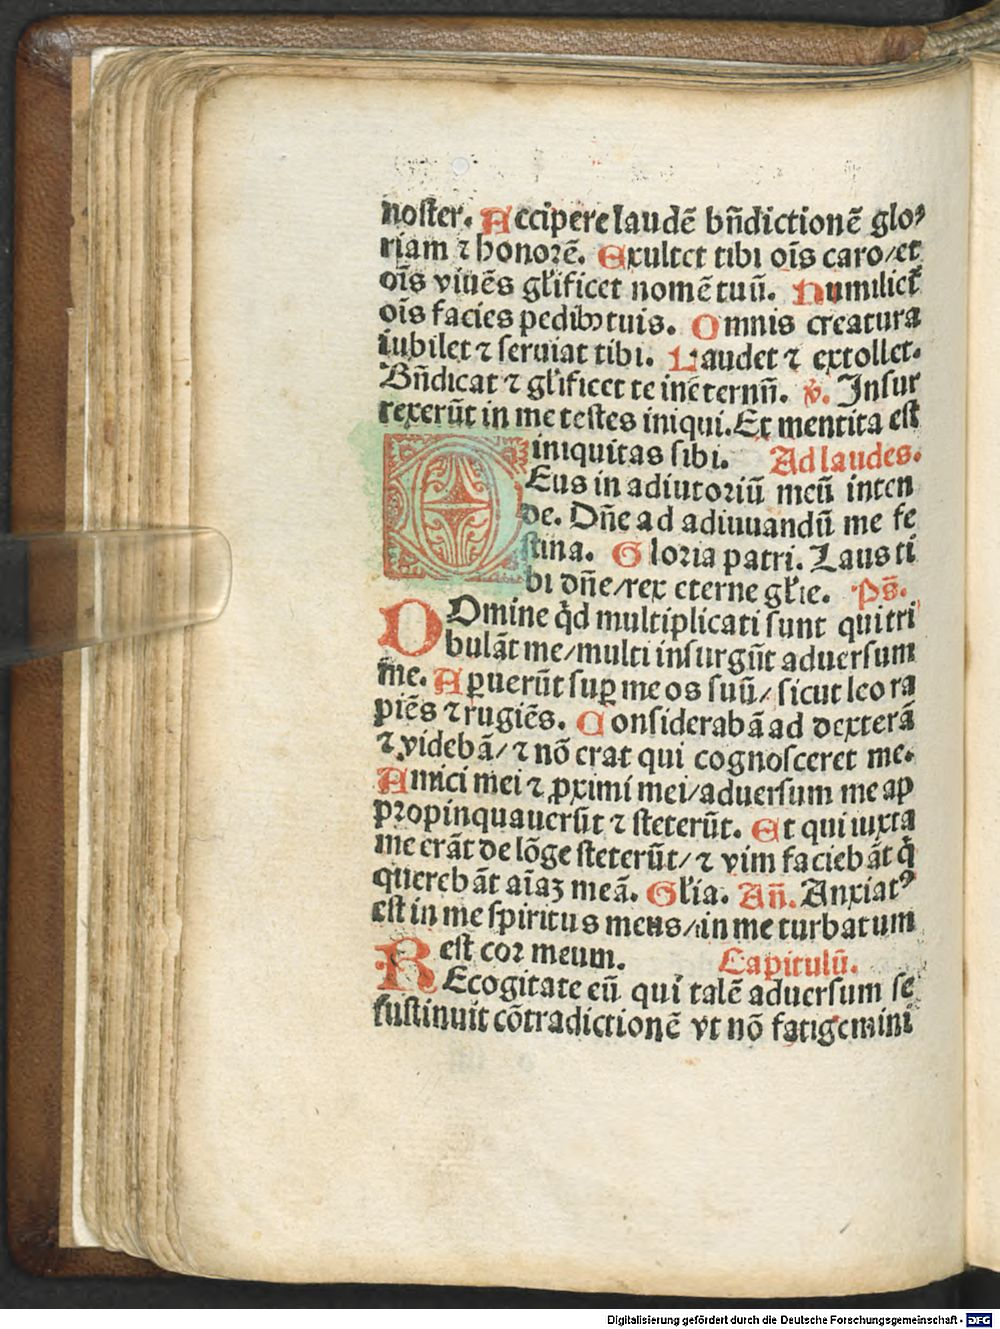 noster. Accipere laudē bn̄dictionē glo⸗
riam ⁊ honorē. Exultet tibi oīs caro/et
oīs viuēs gl̄ificet nomē tuū. Humiliet̄
oīs facies pedibꝰ tuis. Omnis creatura
iubilet ⁊ seruiat tibi. Laudet ⁊ extollet.
Bn̄dicat ⁊ gl̄ificet te in eternū. v̄. Insur
rexerūt in me testes iniqui. Et mentita est
iniquitas sibi. Ad laudes.
DEus in adiutoriū meū inten
de. Dn̄e ad adiuuandū me fe
stina. Gloria patri. Laus ti
bi dn̄e/rex eterne gl̄ie. Ps̄.
DOmine qͥd multiplicati sunt qui tri
bulāt me/multi insurgūt aduersum
me. Aꝑuerūt suꝑ me os suū/sicut leo ra
piēs ⁊ rugiēs. Considerabā ad dexterā
⁊ videbā/⁊ nō erat qui cognosceret me.
Amici mei ⁊ ꝓximi mei/aduersum me ap
propinquauerūt ⁊ steterūt. Et qui iuxta
me erāt de lōge steterūt/⁊ vim faciebāt q̄
querebāt aīaꝫ meā. Gl̄ia. An̄. Anxiatꝰ
est in me spiritus meus/in me turbatum
est cor meum. Capitulū.
REcogitate eū qui talē aduersum se
sustinuit cōtradictionē vt nō fatigemini
Digitalisierung gefördert durch die Deutsche Forschungsgemeinschaft - DFG